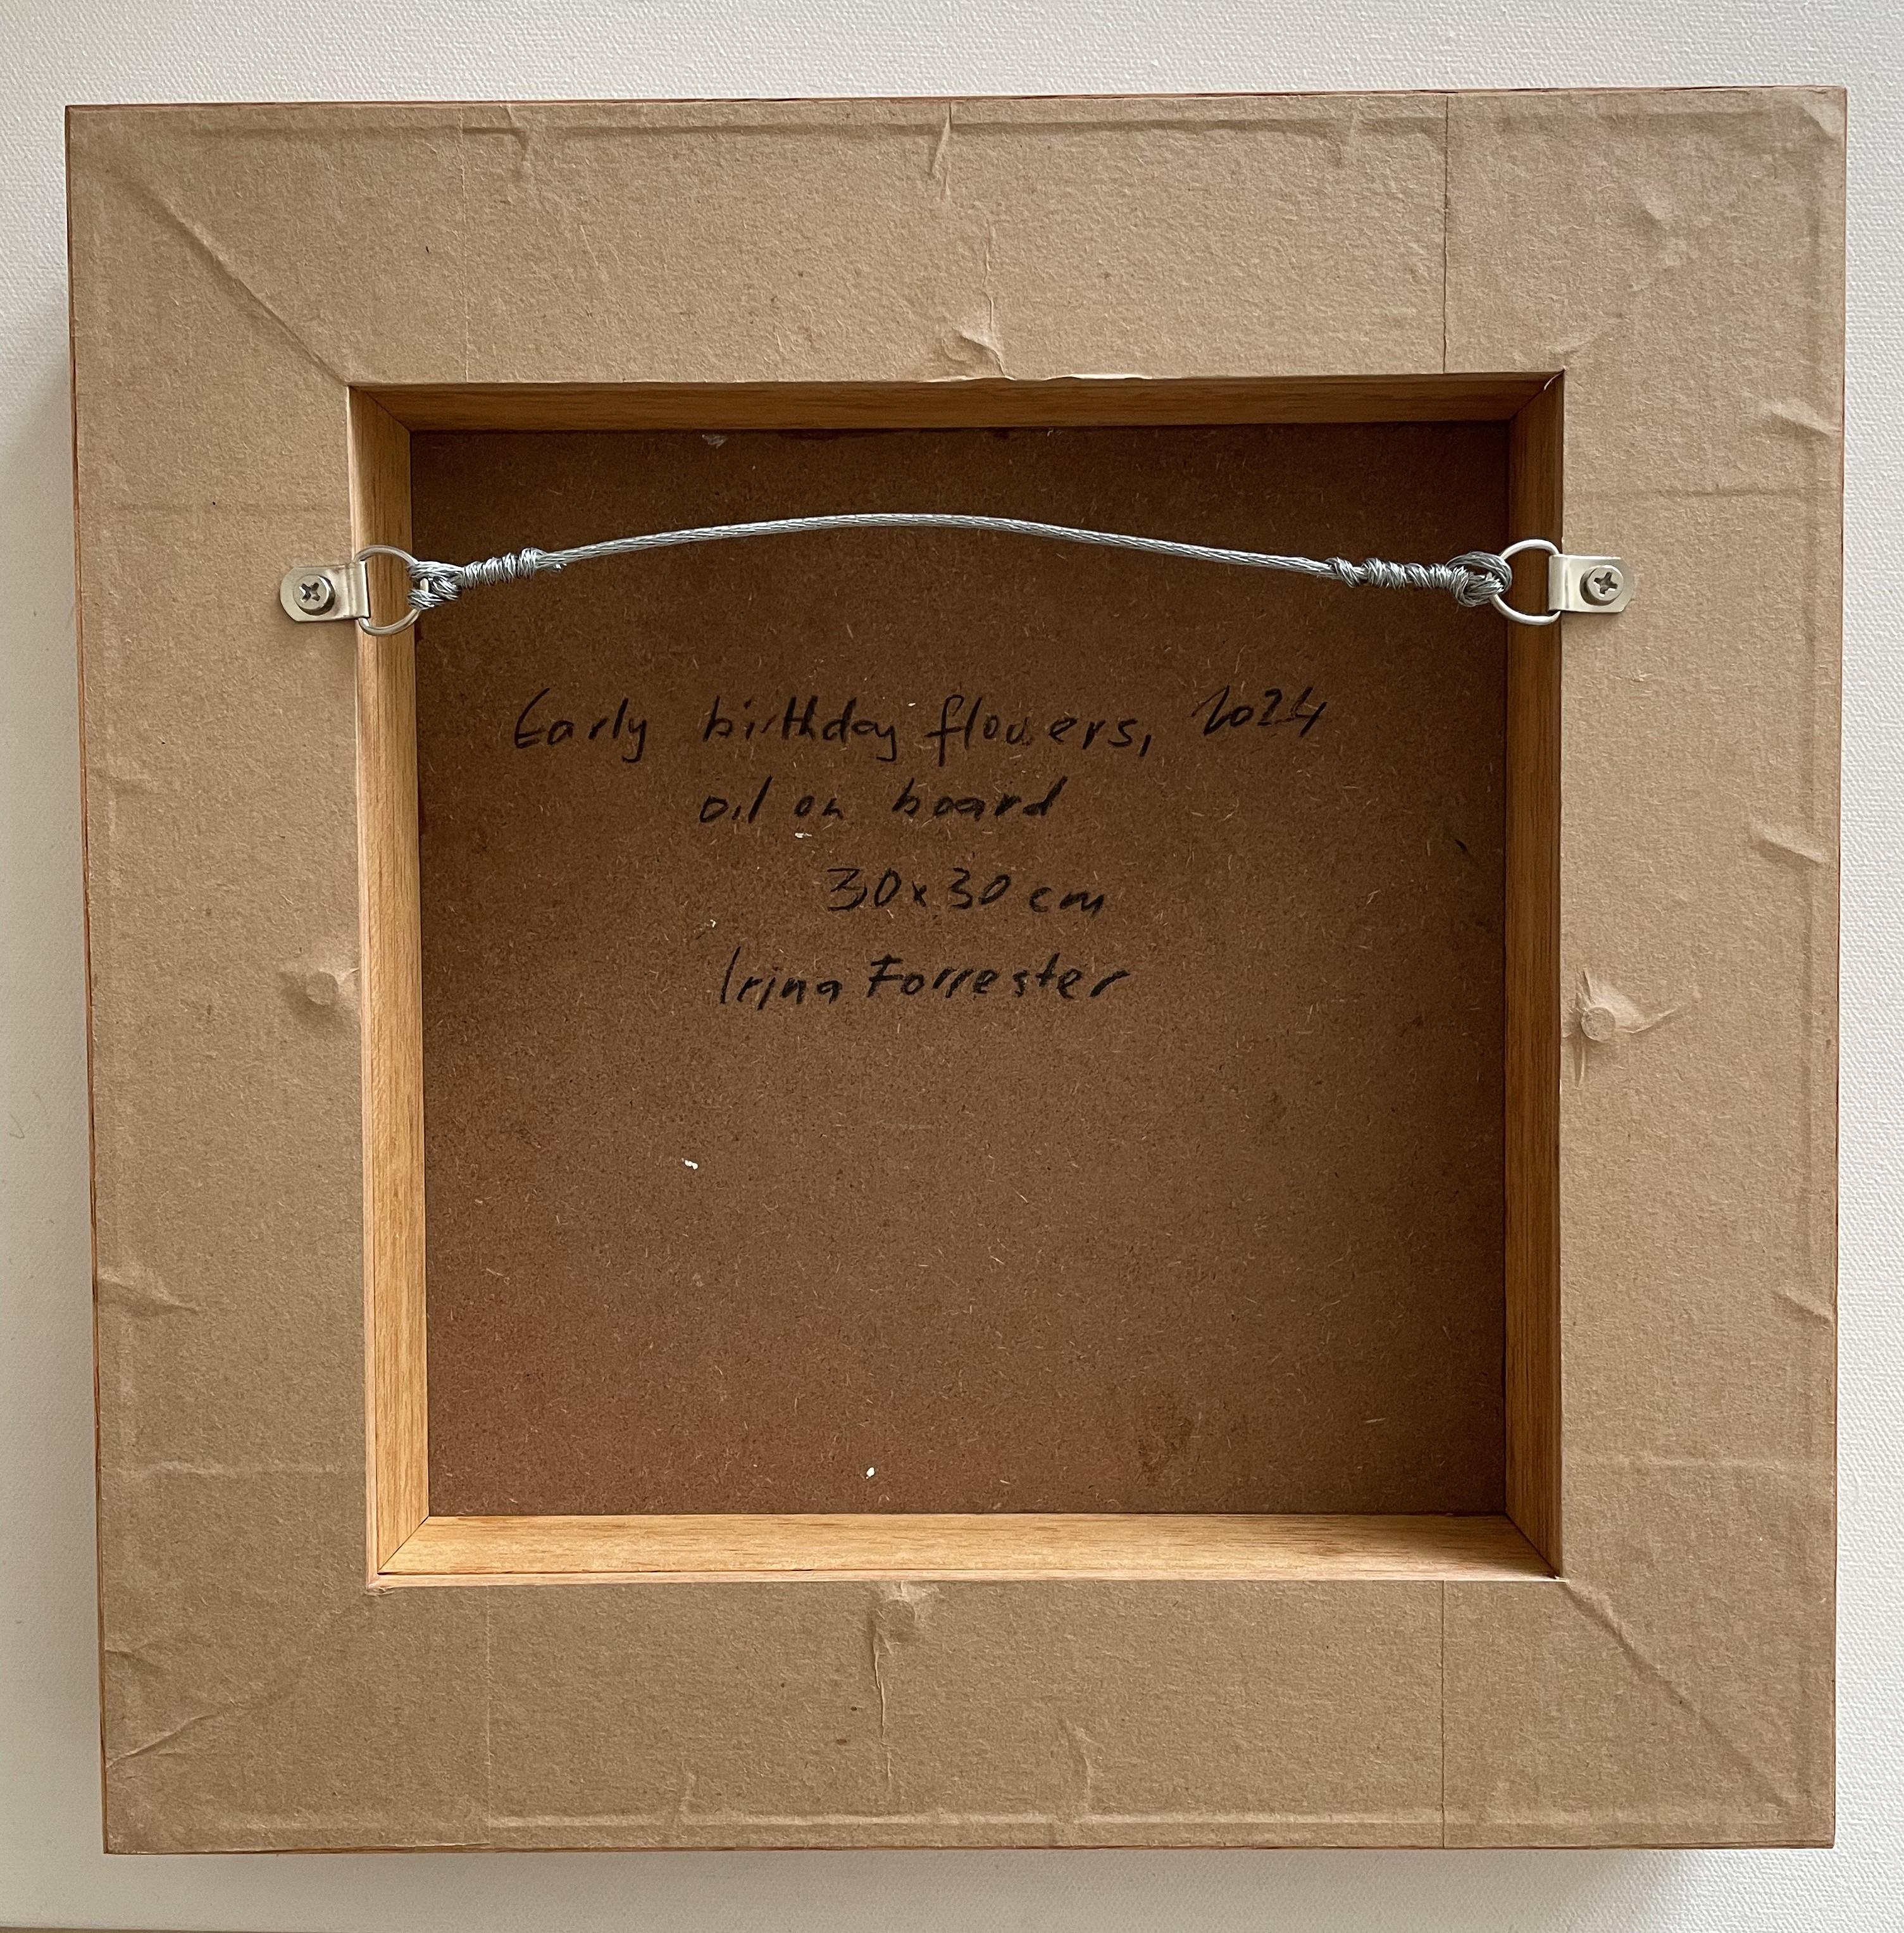 Early birthday flowers, 2024
oil on board
30x30 cm
Irina Forrester